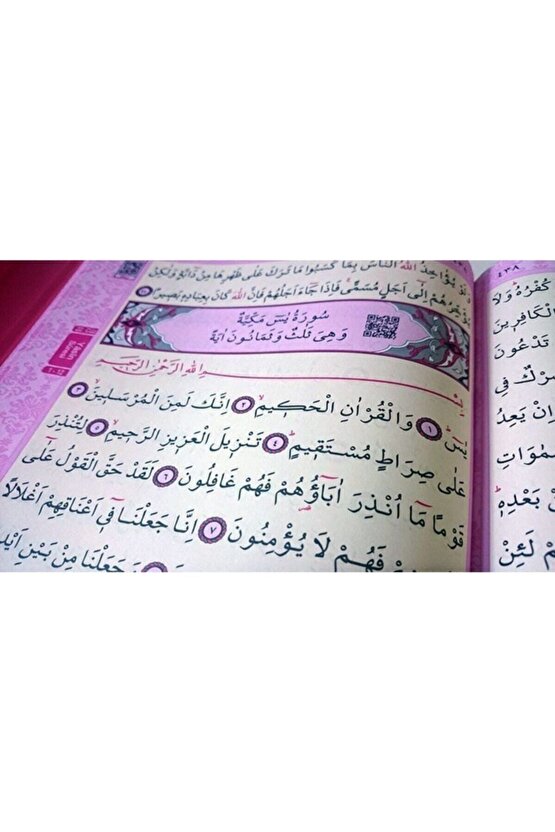 يُؤَاخِذُ اللّٰهُ النَّاسَ بِمَا كَسَبُوا مَا تَرَكَ عَلٰى ظَهْرِهَا مِنْ دَٓابَّةٍ وَلٰكِنْ
يُؤَخِّرُهُمْ اِلٰٓى اَجَلٍ مُسَمًّى فَاِذَا جَٓاءَ اَجَلُهُمْ فَاِنَّ اللّٰهَ كَانَ بِعِبَادِهٖ بَصٖيرًا
سُورَةُ يٰسٓ مَكِّيَّةٌ
وَهِىَ ثَلٰثٌ وَثَمَانُونَ اٰيَةً
بِسْمِ اللّٰهِ الرَّحْمٰنِ الرَّحٖيمِ
يٰسٓ ۝١ وَالْقُرْاٰنِ الْحَكٖيمِ ۝٢ اِنَّكَ لَمِنَ الْمُرْسَلٖينَ ۝٣
عَلٰى صِرَاطٍ مُسْتَقٖيمٍ ۝٤ تَنْزٖيلَ الْعَزٖيزِ الرَّحٖيمِ ۝٥ لِتُنْذِرَ
قَوْمًا مَٓا اُنْذِرَ اٰبَٓاؤُ۬هُمْ فَهُمْ غَافِلُونَ ۝٦ لَقَدْ حَقَّ الْقَوْلُ عَلٰٓى
فَهُمْ لَا يُؤْمِنُونَ ۝٧ اِنَّا جَعَلْنَا فٖٓى اَعْنَاقِهِمْ اَغْلَالًا
وَجَعَلْنَا مِنْ بَيْنِ
٤٣٨
كُفْرُهُ وَلَا
الْكَافِرٖينَ
تَدْعُونَ
شِرْكٌ فِى
اِنْ يَعِدُ
بَعْدِهٖ
لَئِنْ